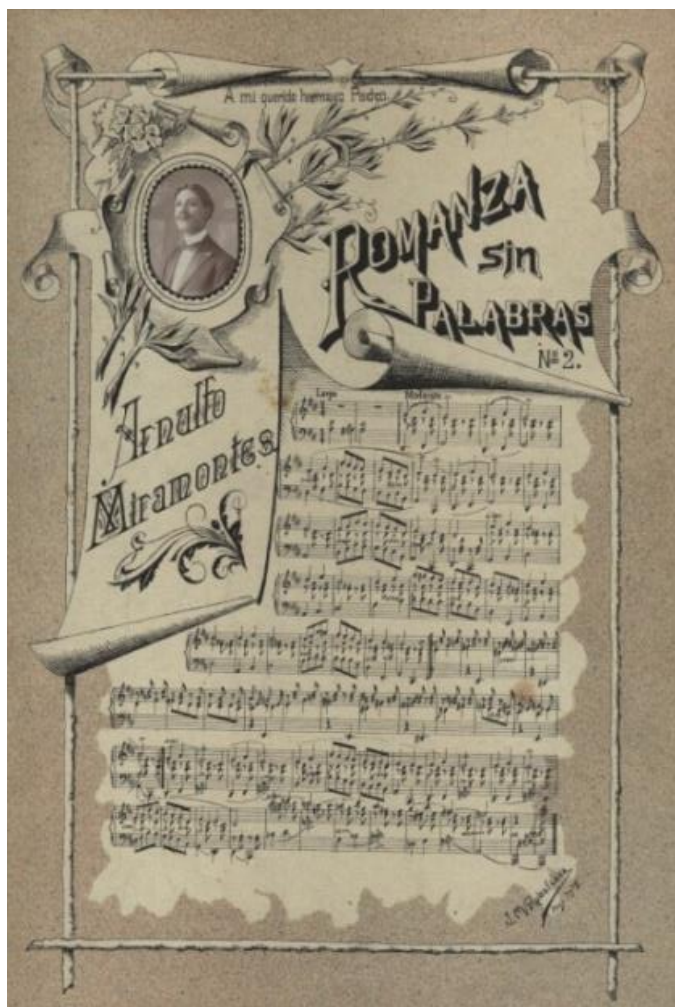 A mi querido hermano
ROMANZA
sin
PALABRAS
Nº 2.
Arnulfo
Miramontes
Largo